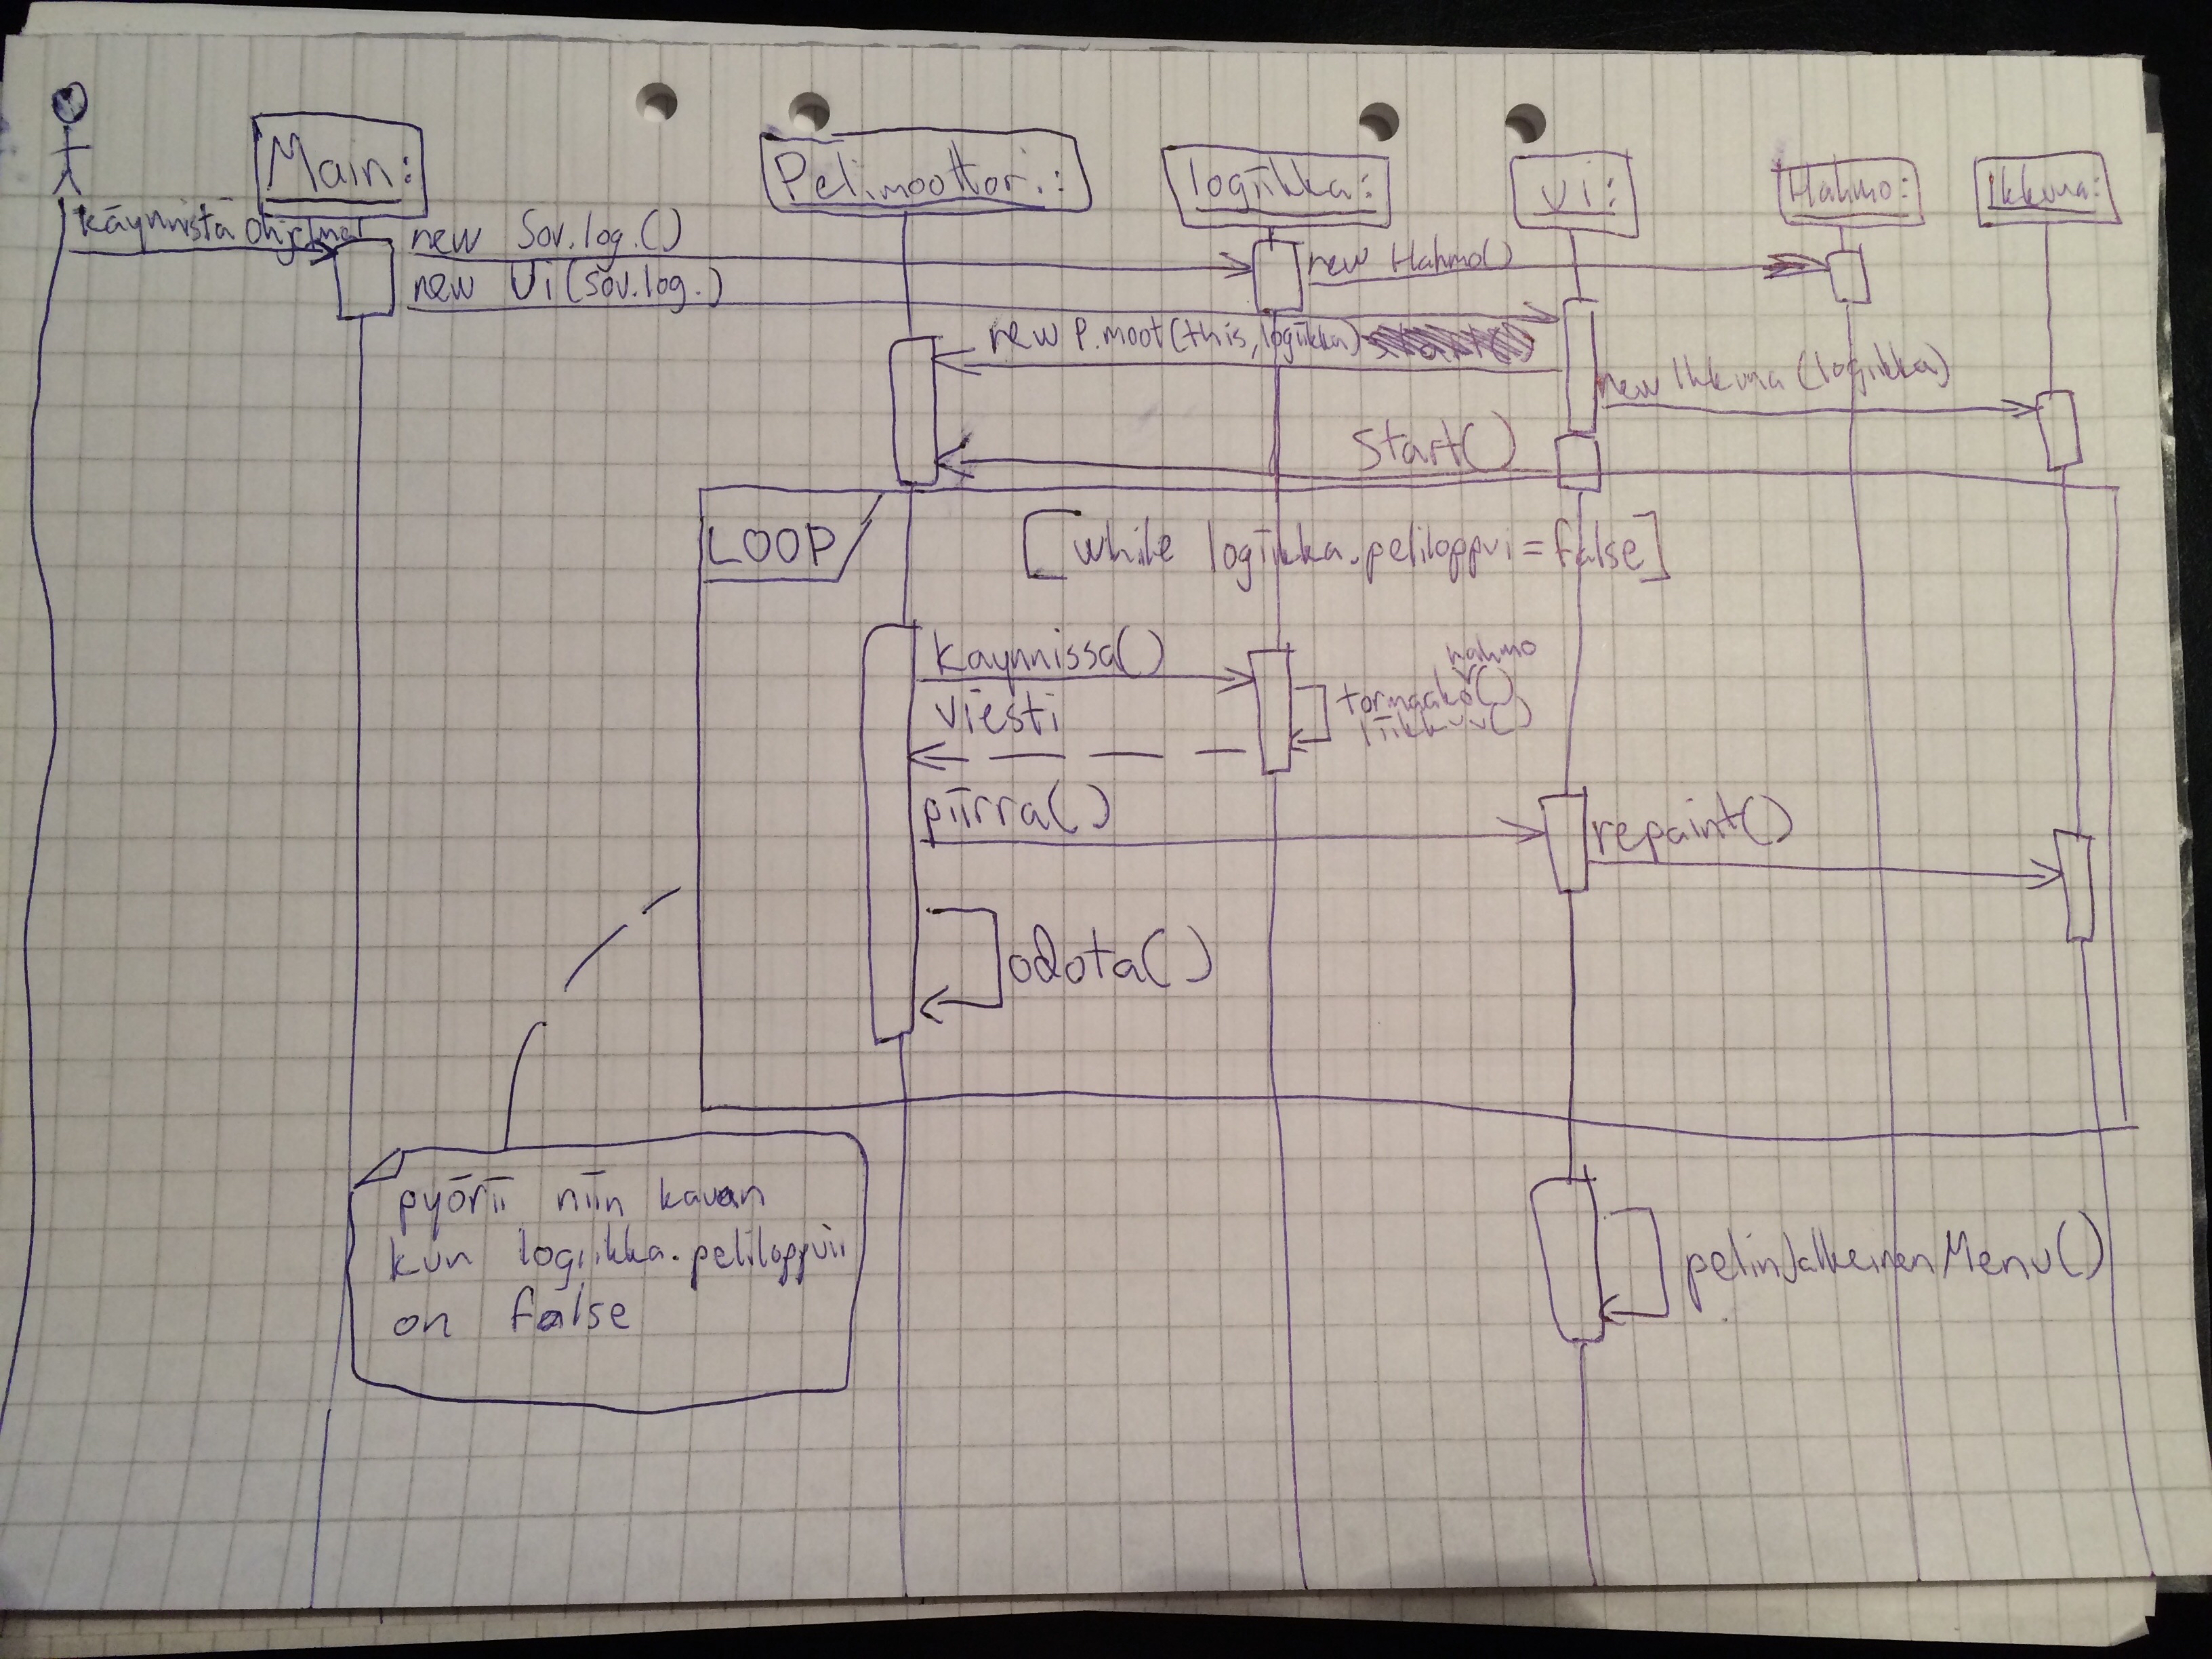 Main:
Pelimoottori:
logiikka:
Ui:
Hahmo:
Ikkuna:
käynnistä ohjelma
new Sov.log.()
new Hahmo()
new Ui(sov.log.)
new P.moot(this, logiikka)
new Ikkuna(logiikka)
Start()
LOOP
[while logiikka.peliloppui=false]
kaynnissa()
hahmo
tormaako()
liikkuu()
viesti
piirra()
repaint()
odota()
pyörii niin kauan
kun logiikka.peliloppuii
on false
pelinJalkeinenMenu()